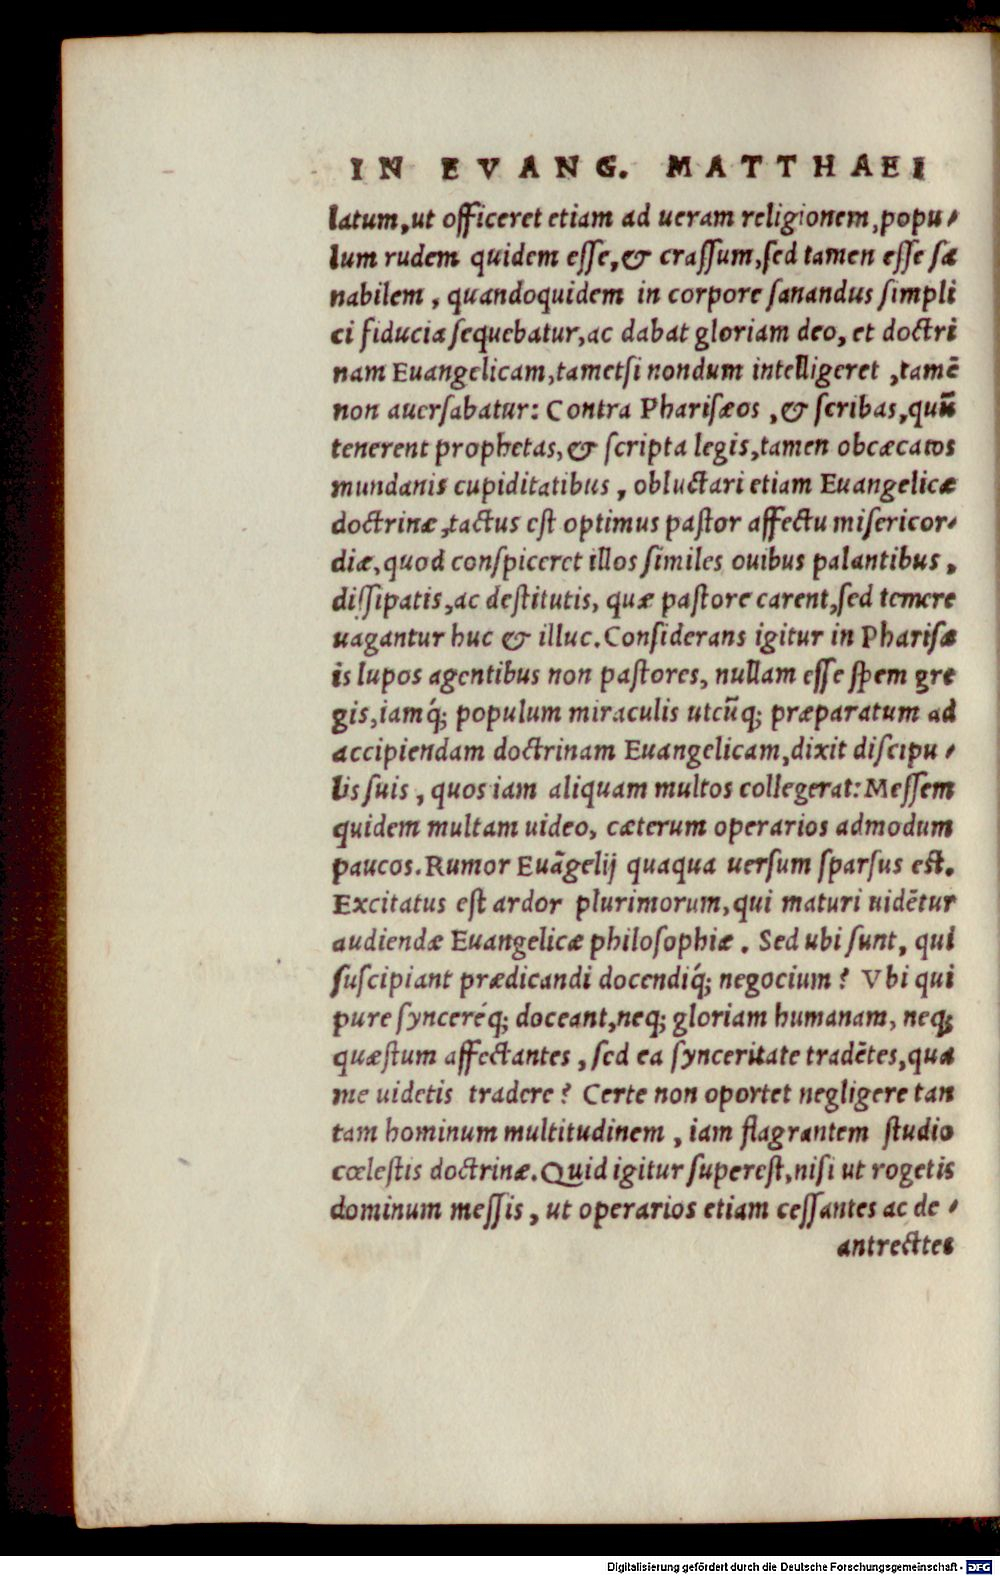 IN EVANG. MATTHAEI
latum, ut officeret etiam ad ueram religionem, popu-
lum rudem quidem esse, & crassum, sed tamen esse sæ
nabilem, quandoquidem in corpore sanandus simpli
ci fiducia sequebatur, ac dabat gloriam deo, et doctri
nam Euangelicam, tametsi nondum intelligeret, tamē
non auersabatur: Contra Pharisæos, & scribas, quū
tenerent prophetas, & scripta legis, tamen obcæcatos
mundanis cupiditatibus, obluctari etiam Euangelicæ
doctrinæ, tactus est optimus pastor affectu misericor-
diæ, quod conspiceret illos similes ouibus palantibus,
dissipatis, ac destitutis, quæ pastore carent, sed temere
uagantur huc & illuc. Considerans igitur in Pharisæ
is lupos agentibus non pastores, nullam esse spem gre
gis, iamq́; populum miraculis utcūq; præparatum ad
accipiendam doctrinam Euangelicam, dixit discipu-
lis suis, quos iam aliquam multos collegerat: Messem
quidem multam uideo, cæterum operarios admodum
paucos. Rumor Euāgelij quaqua uersum sparsus est.
Excitatus est ardor plurimorum, qui maturi uidētur
audiendæ Euangelicæ philosophiæ. Sed ubi sunt, qui
suscipiant prædicandi docendiq́; negocium? Vbi qui
pure synceréq; doceant, neq; gloriam humanam, neq;
quæstum affectantes, sed ea synceritate tradētes, qua
me uidetis tradere? Certe non oportet negligere tan
tam hominum multitudinem, iam flagrantem studio
cœlestis doctrinæ. Quid igitur superest, nisi ut rogetis
dominum messis, ut operarios etiam cessantes ac de-
antrecttes
Digitalisierung gefördert durch die Deutsche Forschungsgemeinschaft - DFG